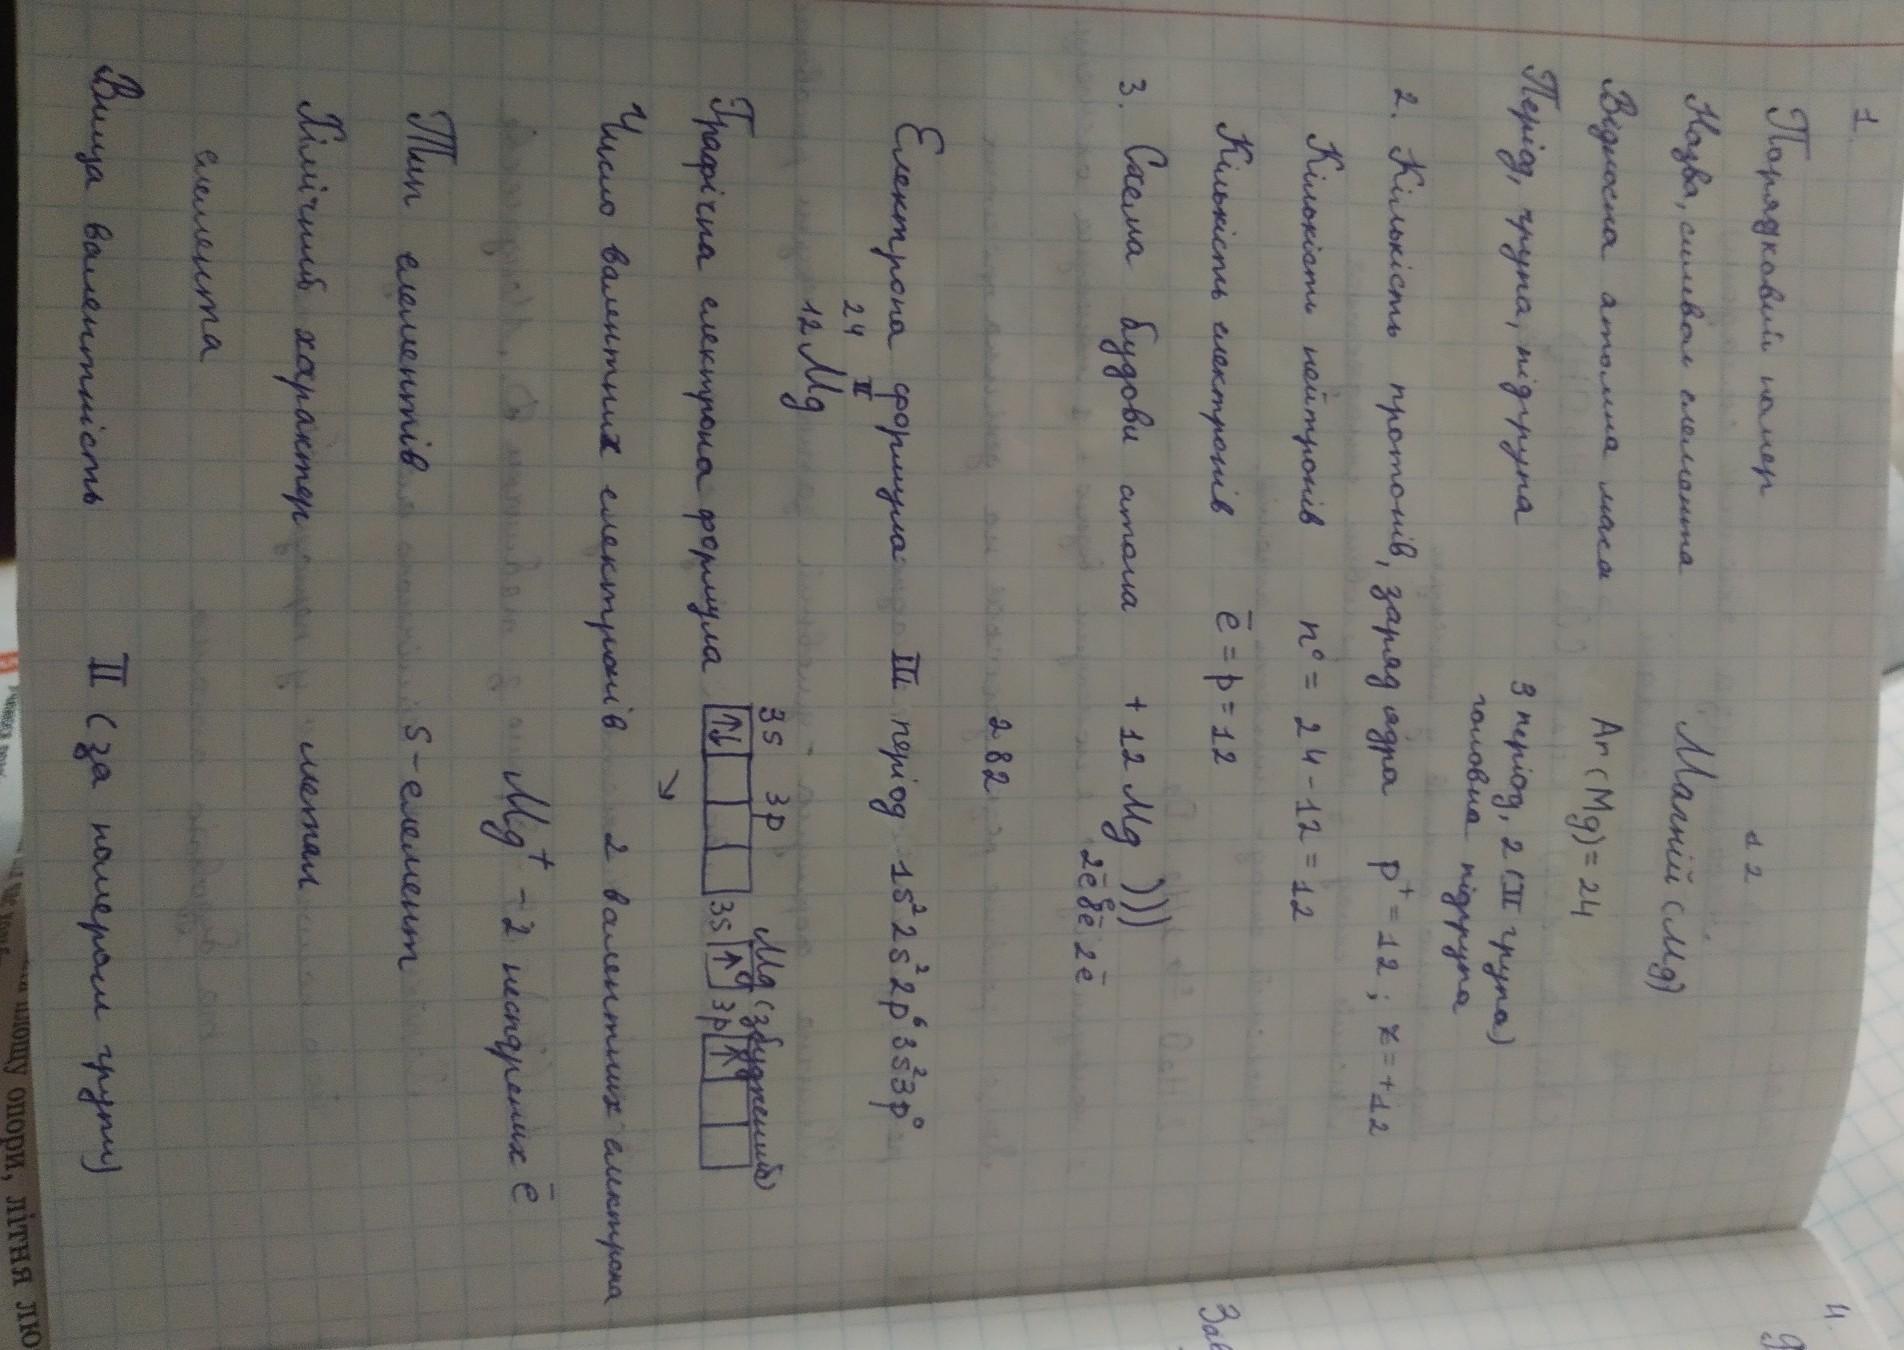 1.
Порядковий номер 12
Назва, символ елемента Магній (Mg)
Відносна атомна маса Ar (Mg) = 24
Період, група, підгрупа 3 період, 2 (II група)
головна підгрупа
2. Кількість протонів, заряд ядра p⁺ = 12 ; z = +12
Кількість нейтронів n⁰ = 24 - 12 = 12
Кількість електронів ē = p = 12
3. Схема будови атома + 12 Mg ) ) )
2ē 8ē 2ē
2 8 2
Електрона формула III період 1s² 2s² 2p⁶ 3s² 3p⁰
24 II
12 Mg
3s 3p Mg (збуджений)
Графічна електрона формула ↑↓ 3s ↑ 3p ↑
↘
Число валентних електронів 2 валентних електрона
Mg⁺ - 2 неспарених ē
Тип елементів s - елемент
Хімічний характер метал
елемента
Вища валентність II (за номером групи)
4.
Зав
площу опори, літня лю